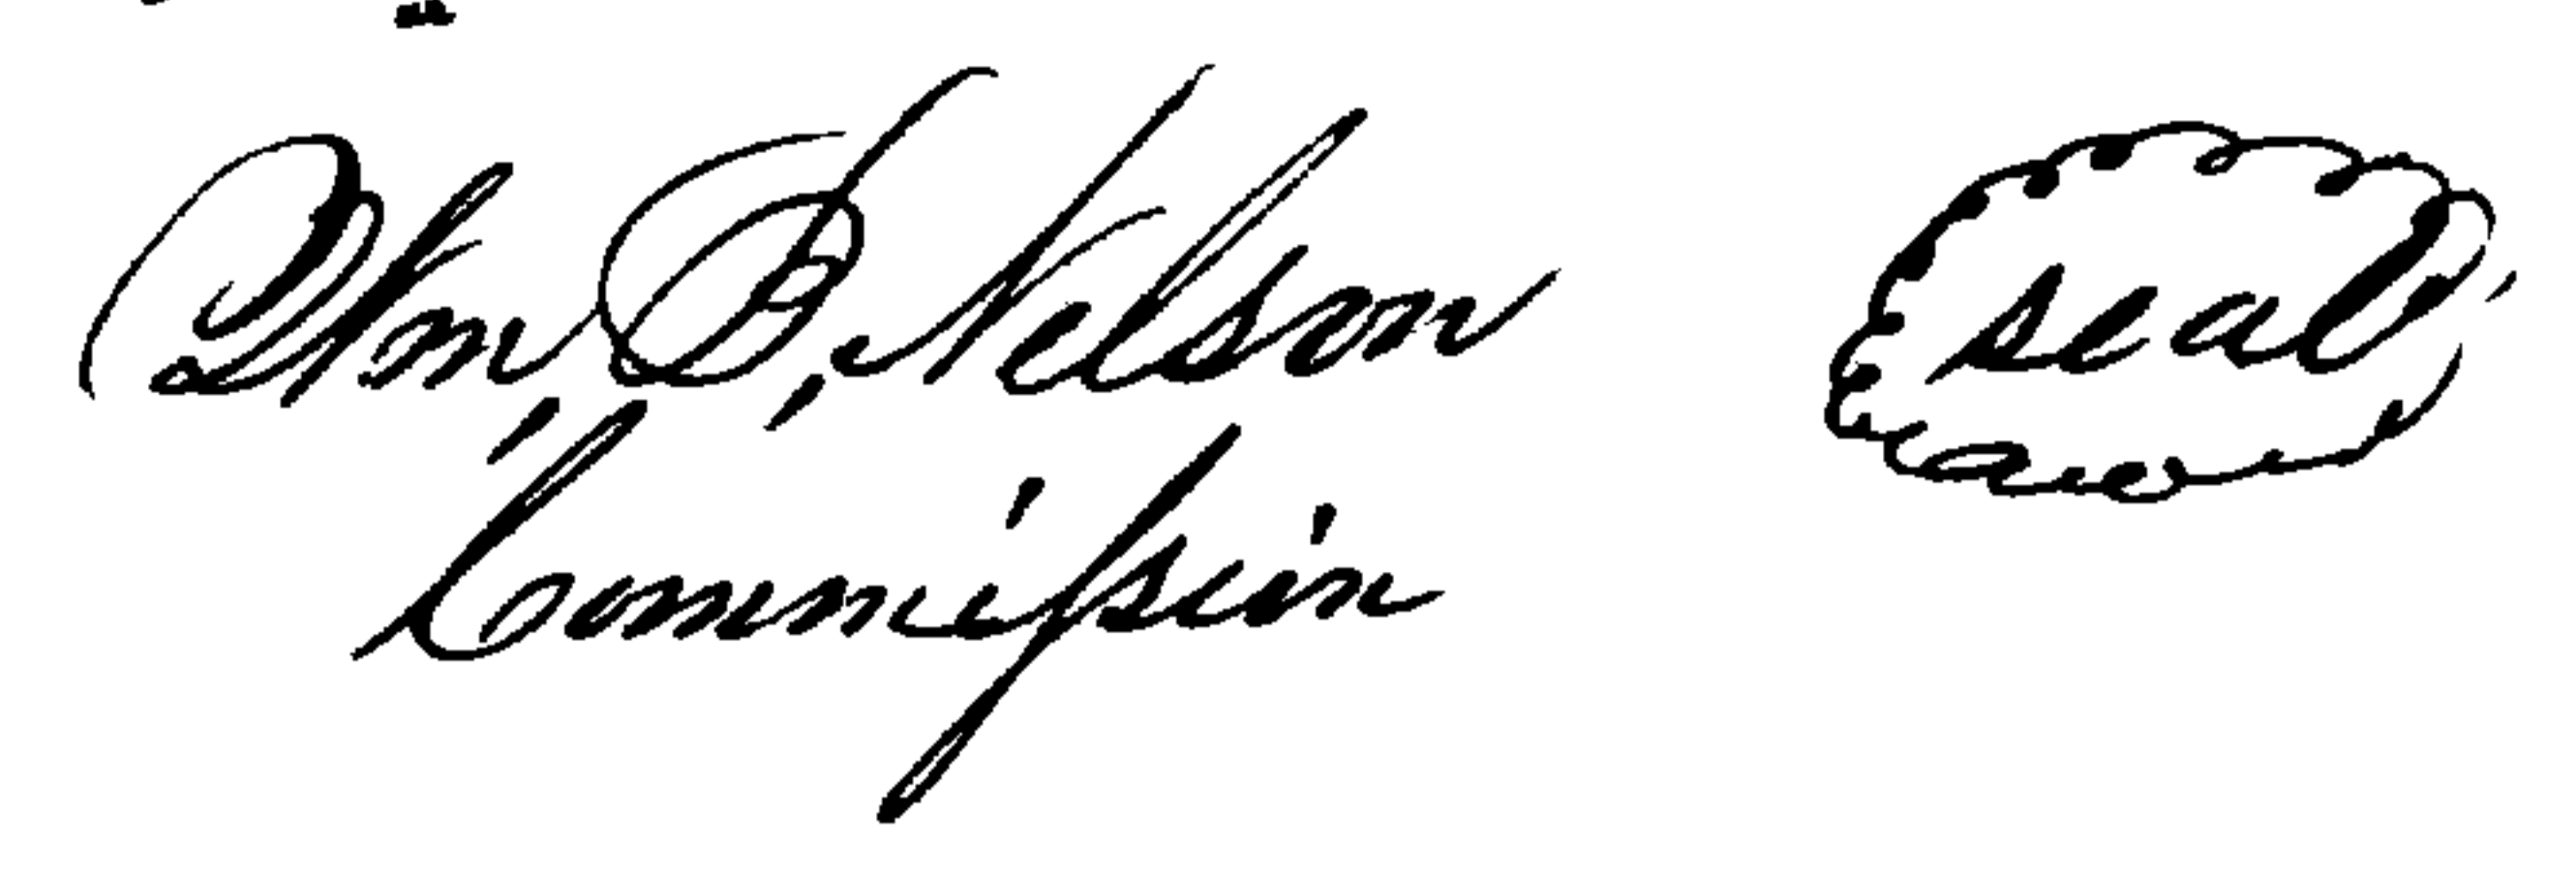 Wm B. Nelson seal
Commission